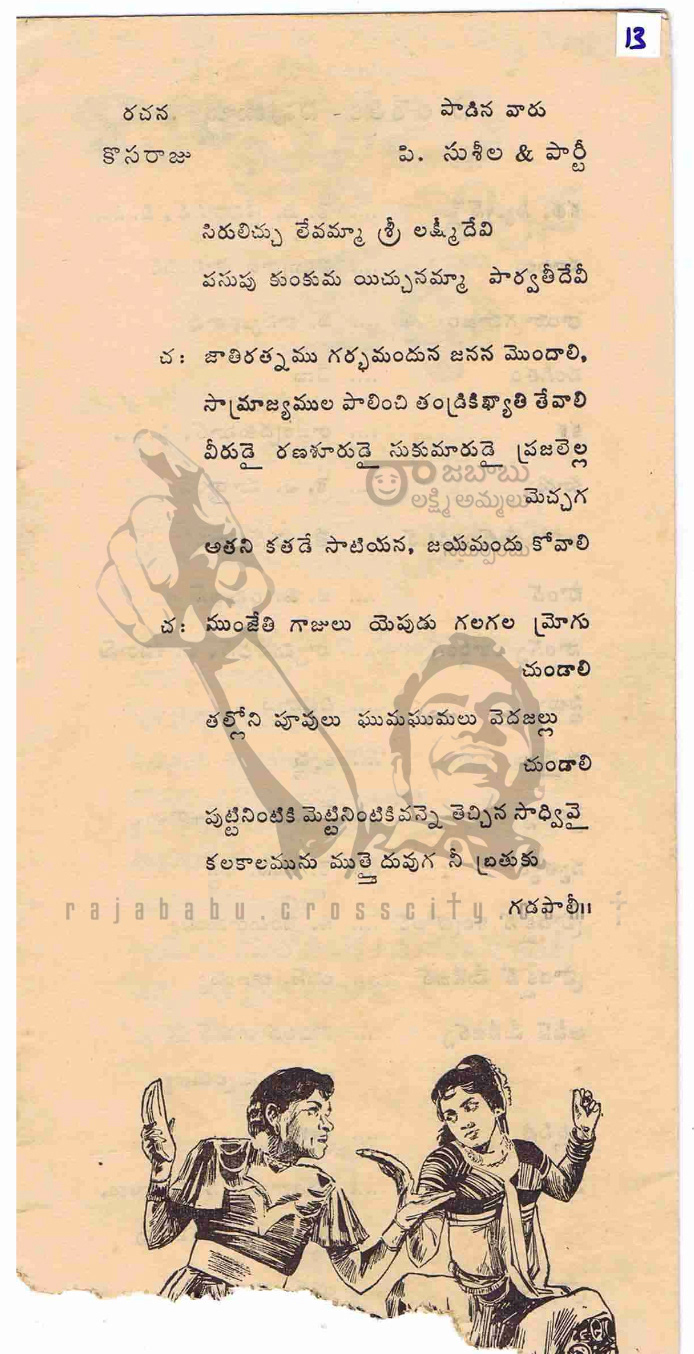 13
రచన - పాడిన వారు
కొసరాజు పి. సుశీల & పార్టీ
సిరులిచ్చు లేవమ్మా శ్రీ లక్ష్మీదేవి
పసుపు కుంకుమ యిచ్చునమ్మా పార్వతీదేవీ
చ: జాతిరత్నము గర్భమందున జనన మొందాలి,
సామ్రాజ్యముల పాలించి తండ్రికిఖ్యాతి తేవాలి
వీరుడై రణశూరుడై సుకుమారుడై ప్రజలెల్ల
రాజబాబు
లక్ష్మి అమ్మలు
మెచ్చగ
అతని కతడే సాటియన, జయమందు కోవాలి
చ: ముంజేతి గాజులు యెపుడు గలగల మ్రోగు
చుండాలి
తల్లోని పూవులు ఘుమఘుమలు వెదజల్లు
చుండాలి
పుట్టినింటికి మెట్టినింటికివన్నె తెచ్చిన సాధ్వివై
కలకాలమును ముత్తైదువుగ నీ బ్రతుకు
గడపాలీ॥
rajababu.crosscity.